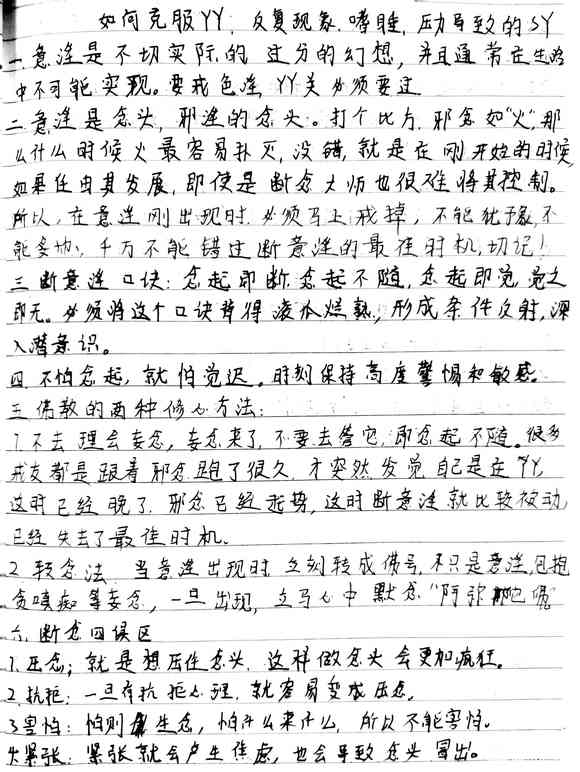 如何克服YY、反复现象、嗜睡、压力导致的SY
一.意淫是不切实际的过分的幻想,并且通常在生活
中不可能实现。要戒色淫,YY关必须要过
二.意淫是念头,邪淫的念头。打个比方,邪念如"火",那
么什么时候火最容易扑灭,没错,就是在刚开始的时候,
如果任由其发展,即使是断念大师也很难将其控制。
所以,在意淫刚出现时,必须马上戒掉,不能犹豫,不
能多想,千万不能错过断意淫的最佳时机,切记!
三.断意淫口诀:念起即断,念起不随,念起即觉,觉之
即无。必须将这个口诀背得滚瓜烂熟,形成条件反射,深
入潜意识。
四.不怕念起,就怕觉迟。时刻保持高度警惕和敏感。
五.佛教的两种修心方法:
1.不去理会妄念,妄念来了,不要去管它,即念起不随。很多
戒友都是跟着邪念跑了很久,才突然发觉自己是在YY,
这时已经晚了,邪念已经起势,这时断意淫就比较被动,
已经失去了最佳时机。
2.转念法 当意淫出现时,立刻转成佛号,不只是意淫,包抱
贪嗔痴等妄念,一旦出现,立马心中默念"阿弥陀佛
六.断念四误区
1.压念:就是想压住念头,这样做念头会更加疯狂。
2.抗拒:一旦有抗拒心理,就容易变成压念。
3.害怕:怕则生念,怕什么来什么,所以不能害怕。
4.紧张:紧张就会产生焦虑,也会导致念头冒出。